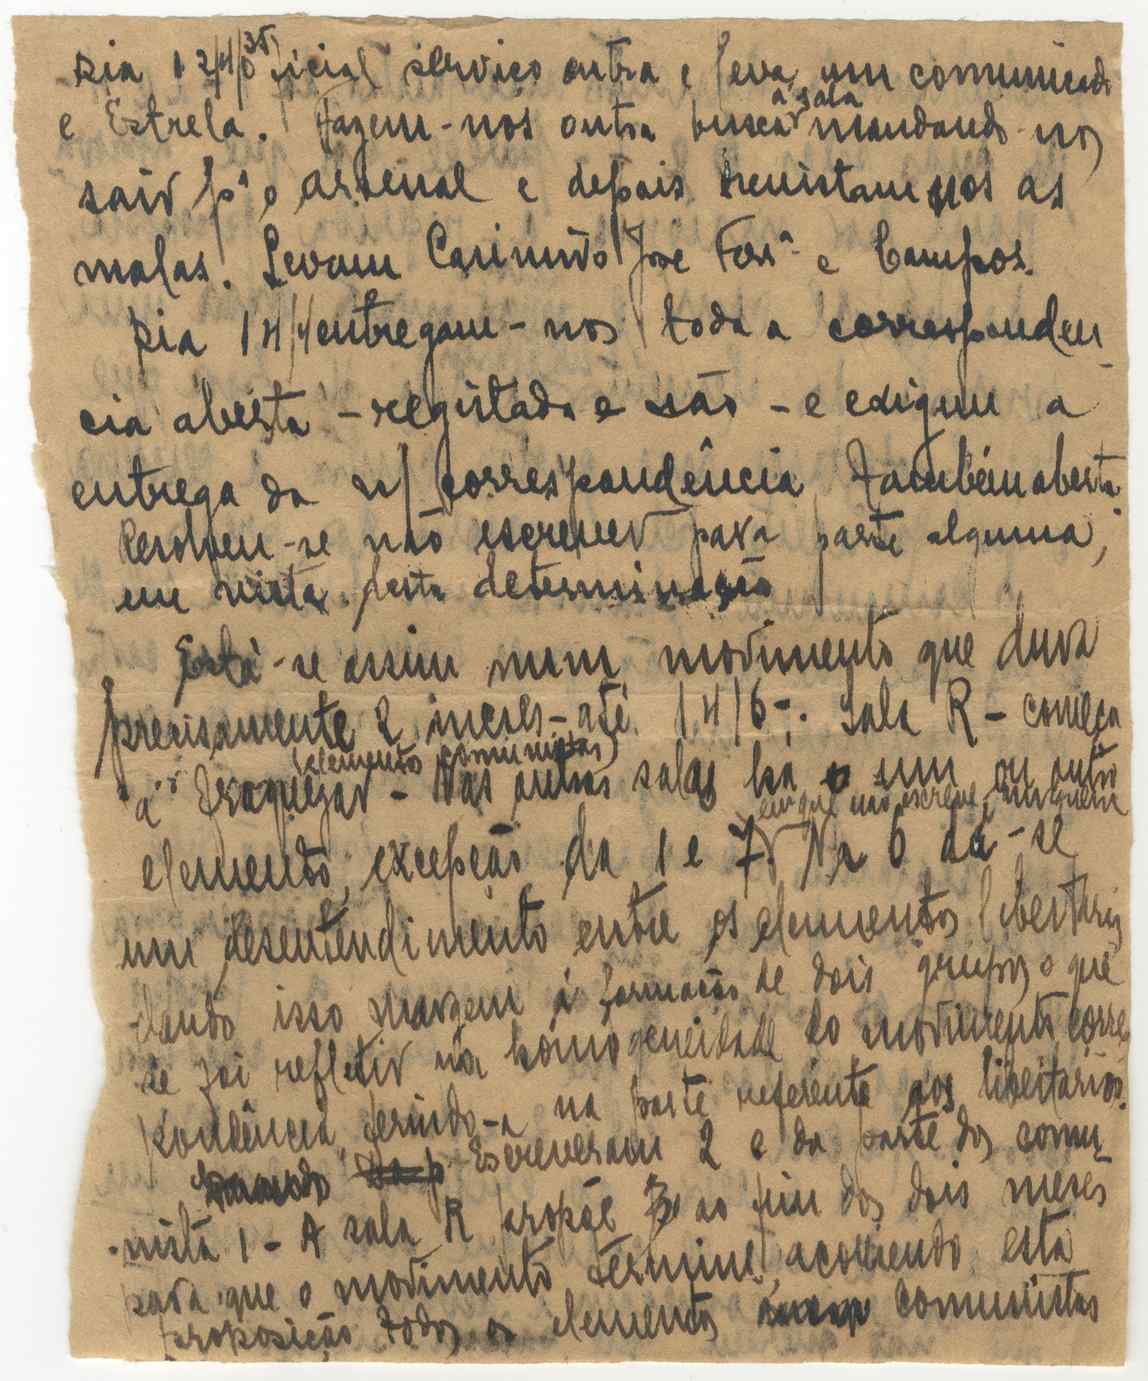 Dia 12/4/35 oficial serviço entra e leva um comunicado
e Estrela. Fazem-nos outra busca à sala mandando-nos
sair p.ª o arsenal e depois revistam-nos as
malas. Levam Casimiro José Ferr.ª e Campos.
Dia 14/4 entregam-nos toda a corresponden-
cia aberta - registada e não - e exigem a
entrega da n/ correspondência também aberta
Resolveu-se não escrever para parte alguma,
em vista desta determinação
Está-se assim num movimento que dura
precisamente 2 meses - até 14/6 -. Sala R - começa
a fraquejar - (elementos comunistas) Nas outras salas ha um ou outro
elemento, excepção da 1 e 7 em que não escreve ninguem. Na 6 dá-se
um desentendimento entre os elementos libertarios
dando isso margem á formação de dois grupos o que
se foi refletir na homogeneidade do movimento corres
pondência, ferindo-a na parte referente aos libertarios.
Escreveram 2 e da parte dos comu-
nista 1 - A sala R propõe ao fim dos dois meses
para que o movimento termine, acorrendo esta
proposição todos os elementos comunistas